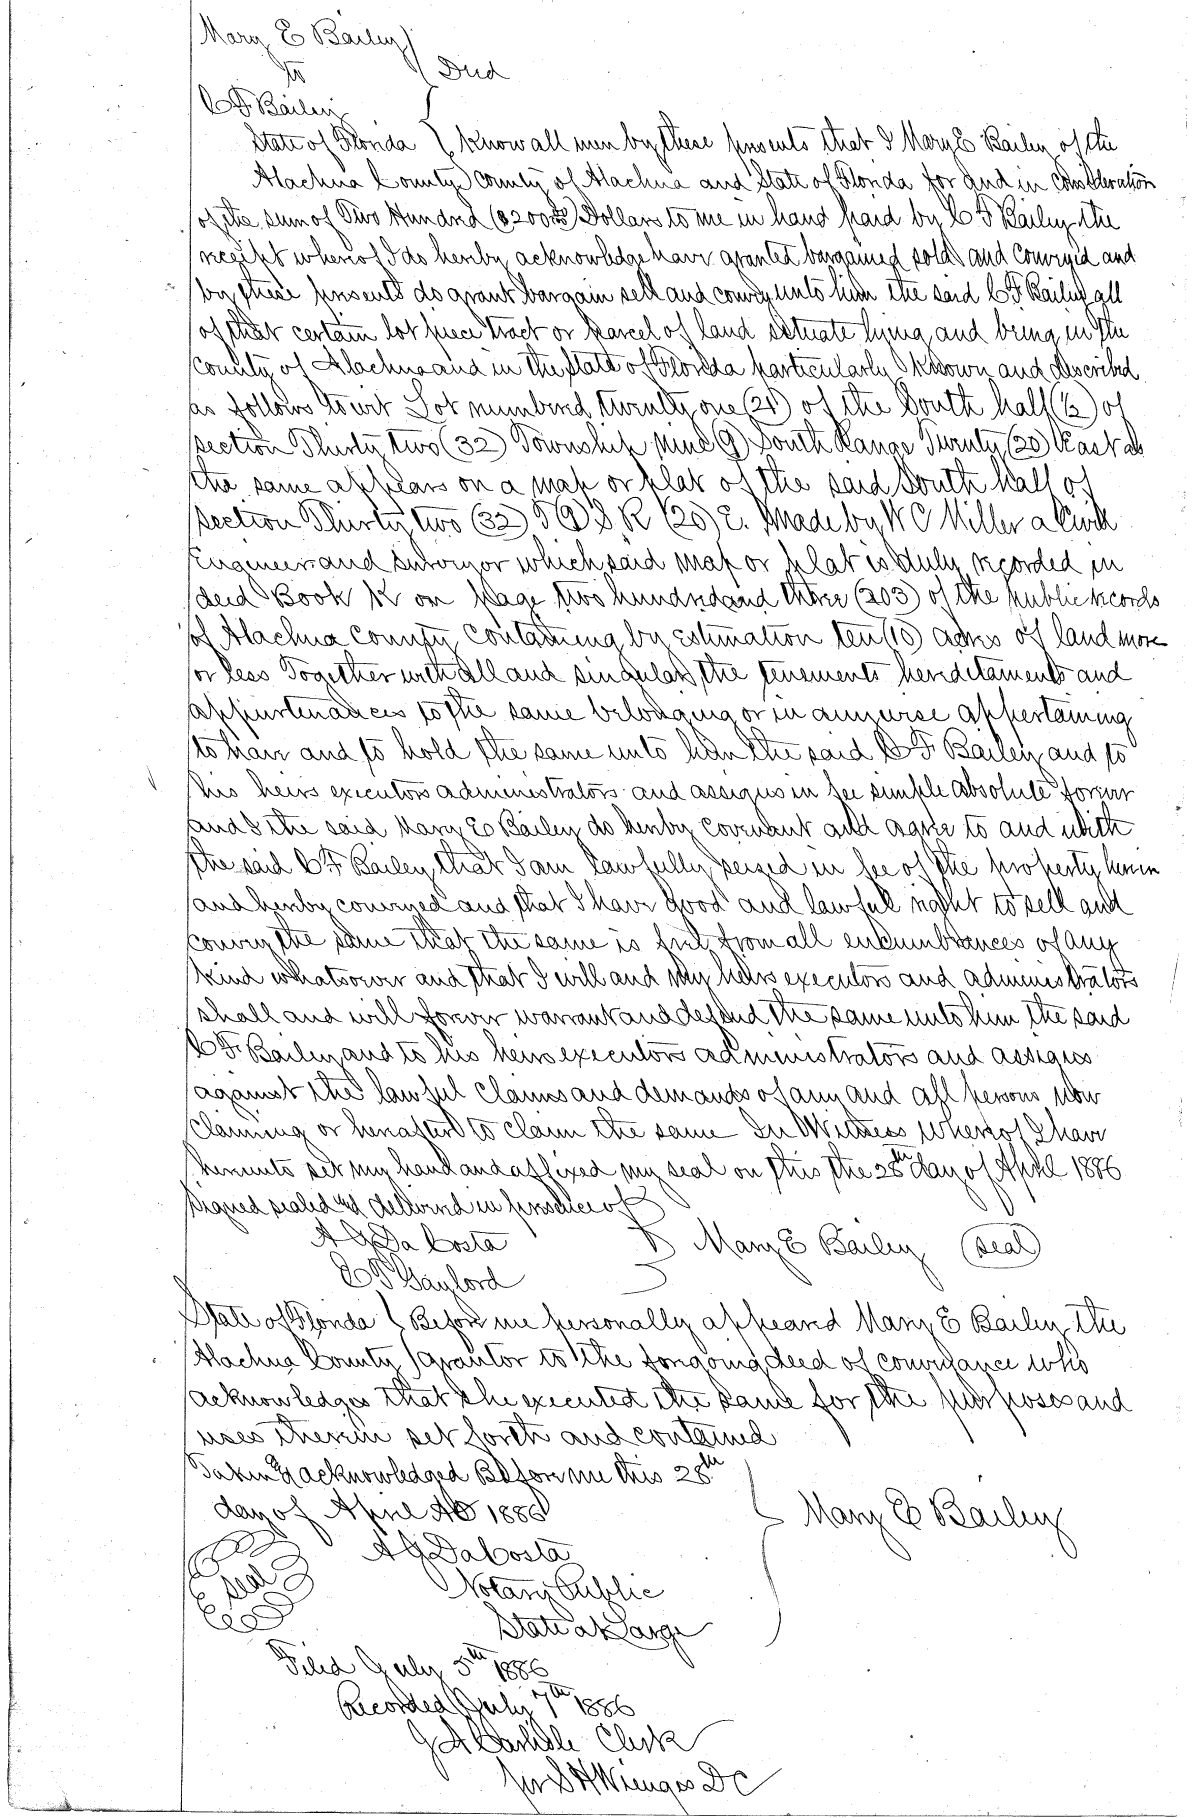 Mary E Bailey
to Deed
C F Bailey
State of Florida Know all men by these presents that I Mary E Bailey of the
Alachua County County of Alachua and State of Florida for and in consideration
of the sum of Two Hundred ($200 00/100) Dollars to me in hand paid by C F Bailey the
receipt whereof I do hereby acknowledge have granted bargained sold and conveyed and
by these presents do grant bargain sell and convey unto him the said C F Bailey all
of that certain lot piece tract or parcel of land situate lying and being in the
County of Alachua and in the State of Florida particularly known and described
as follows to wit Lot numbered twenty one (21) of the South half (½) of
section Thirty two (32) Township nine (9) South Range Twenty (20) East as
the same appears on a map or plat of the said South half of
section Thirty two (32) T (9) S R (20) E. made by W C Miller a Civil
Engineer and surveyor which said map or plat is duly recorded in
deed Book K on page two hundred and three (203) of the public records
of Alachua County containing by estimation ten (10) acres of land more
or less Together with all and singular the tenements hereditaments and
appurtenances to the same belonging or in anywise appertaining
to have and to hold the same unto him the said C F Bailey and to
his heirs executors administrators and assigns in fee simple absolute forever
and I the said Mary E Bailey do hereby covenant and agree to and with
the said C F Bailey that I am lawfully seized in fee of the property herein
and hereby conveyed and that I have good and lawful right to sell and
convey the same that the same is free from all encumbrances of any
kind whatsoever and that I will and my heirs executors and administrators
shall and will forever warrant and defend the same unto him the said
C F Bailey and to his heirs executors administrators and assigns
against the lawful claims and demands of any and all persons now
claiming or hereafter to claim the same In Witness Whereof I have
hereunto set my hand and affixed my seal on this the 28th day of April 1886
Signed sealed and delivered in presence of
A J Da Costa Mary E Bailey (seal)
C P Gaylord
State of Florida Before me personally appeared Mary E Bailey the
Alachua County grantor to the foregoing deed of conveyance who
acknowledges that she executed the same for the purposes and
uses therein set forth and contained
Taken & acknowledged Before me this 28th
day of April AD 1886 Mary E Bailey
A J Da Costa
seal Notary Public
State at Large
Filed July 5th 1886
Recorded July 7th 1886
J A Carlisle Clerk
per S H Wienges DC